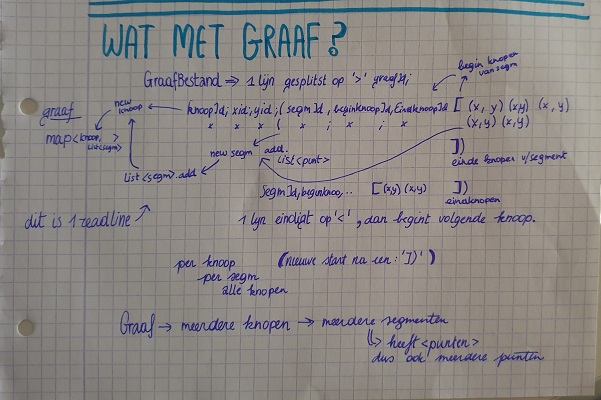 WAT MET GRAAF?
GraafBestand => 1 lijn gesplitst op '>' graafId;
begin knopen van segm
graaf
new knoop
knoopId; xid; yid; ( segmId, beginknoopId, EindknoopId [ (x, y) (x,y) (x, y)
(x,y) (x,y)
map<knoop, List<segm>>
x x x ( x ; x ; x
new segm add.
List<punt>
])
einde knopen v/segment
List<segm>.add
SegmId, beginknoo,.. [(x,y) (x,y) ])
eindknopen
dit is 1 readline
1 lijn eindigt op '<', dan begint volgende knoop.
per knoop (nieuwe start na een: '])' )
per segm
alle knopen
Graaf → meerdere knopen → meerdere segmenten
↳ heeft <punten>
dus ook meerdere punten